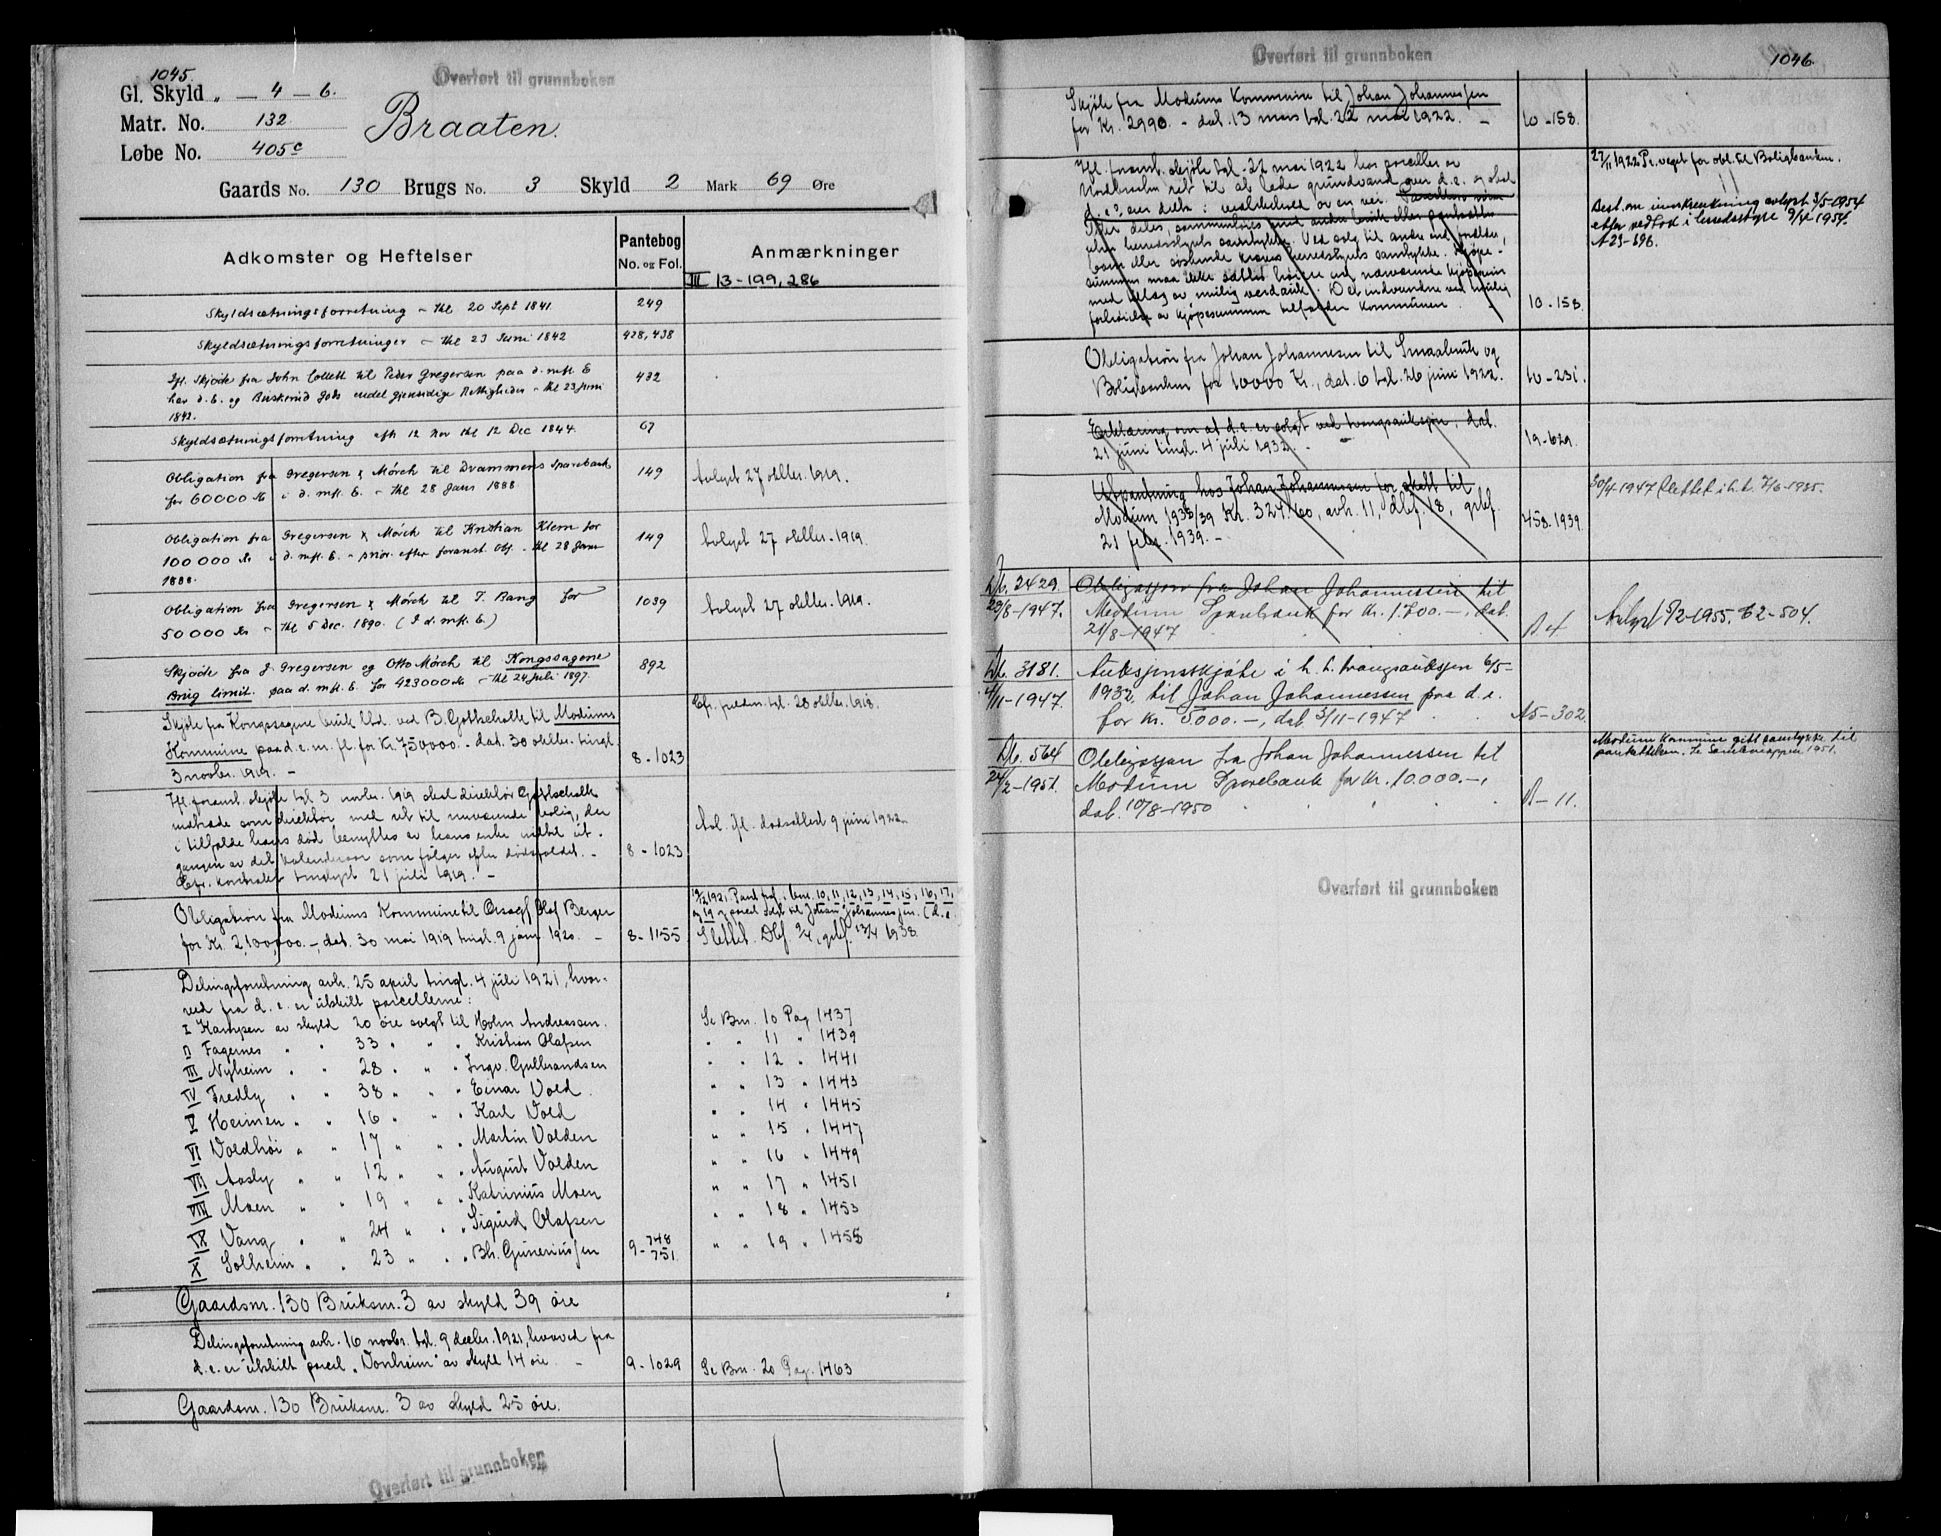 1045.
Overført til grunnboken
Gl. Skyld " — 4 — 6.
Matr. No. 132
Løbe No. 405c
Braaten.
Gaards No. 130 Brugs No. 3 Skyld 2 Mark 69 Øre
Adkomster og Heftelser
Pantebog
No. og Fol.
Anmærkninger
III 13-199, 286
Skyldsætningsforretning – thl 20 Sept 1841 249
Skyldsætningsforretninger – thl 23 Juni 1842 428, 438
Ifl. Skjøde fra John Collett til Peder Gregersen paa d. mfl. E 432
har d. E. og Buskerud Gods endel gjensidige Rettigheder – thl 23 Juni
1842.
Skyldsætningsforretning afh 12 Nov thl 12 Dec 1844. 67
Obligation fra Gregersen & Mörch til Drammens Sparebank 149 Avlyst 27 oktbr. 1919.
for 60000 Kr i d. mfl. E. – thl 28 Jans 1888
Obligation fra Gregersen & Mörch til Kristian Klem for 149 Avlyst 27 oktbr. 1919.
100 000 Kr i d. mfl. E. – prior. efter foranst. Obl. – thl 28 Jans
1888.
Obligation fra Gregersen & Mörch til T. Bang for 1039 Avlyst 27 oktbr. 1919.
50 000 Kr – thl 5 Dec. 1890. (I d. mfl. E.)
Skjøde fra J. Gregersen og Otto Mörch til Kongssagene 892
Brug limit. paa d. mfl. E. for 423000 Kr – thl 24 Juli 1897.
Cfr. tgl. 28 oktbr. 1918.
Skjøte fra Kongssagene bruk Ltd. ved B. Gottschalk til Modums
Kommune paa d. e. m. fl. for Kr. 750000.- dat. 30 oktbr. tingl. 8 - 1023
3 novbr. 1919. –
Ifl. foranst. skjøte tgl 3 novbr. 1919 skal direktør Gottschalk
som direktør med ret til nuværende bolig, der
i tilfælde hans død benyttes av hans enke indtil ut- Avl. ifl. dødsattest 9 juni 1922
gangen av det kalenderaar som følger efter dødsfaldet. – 8 - 1023
Cfr. kontrakt tinglyst 21 juli 1919. –
Obligation fra Modums Kommune til Olaf Berger
for Kr. 2,100,000.–, dat. 30 mai 1919 tingl. 9 jan. 1920. – 8 - 1155
1921. Pant fraf. bnr. 10, 11, 12, 13, 14, 15, 16, 17,
og 19 og parcel solgt til Johan Johannesen. (d. e.
Slettet. Dbf 1938.
Delingsforretning avh. 25 april tingl. 4 juli 1921, hvor-
ved fra d. e. er utskilt parcellerne:
I Kampen av skyld 20 øre solgt til Holm Andreassen. Se Bnr. 10 Pag 1437
II Fagernes " " 33 " " " Kristian Olafsen " " 11 " 1439
III Nyheim " " 28 " " " Ingv. Gulbrandsen " " 12 " 1441
IV Fredly " " 38 " " " Einar Vold " " 13 " 1443
V Heimen " " 16 " " " Karl Vold " " 14 " 1445
VI Voldhøi " " 17 " " " Martin Volden " " 15 " 1447
VII Aasly " " 12 " " " August Volden " " 16 " 1449
VIII Moen " " 19 " " " Katrinius Moen " " 17 " 1451
IX Vang " " 24 " " " Sigurd Olafsen " " 18 " 1453
X Solheim " " 23 " " " Bh. Gunerinssen 9 - 748 751. " " 19 " 1455
Gaardsnr. 130 Bruksnr. 3 av skyld 39 øre
Delingsforretning avh. 16 novbr. tgl. 9 decbr. 1921, hvorved fra
d. e. er utskilt parcel "Vonheim" av skyld 14 øre – 9 - 1029 Se Bnr. 20 Pag. 1463
Gaardsnr. 130 Bruksnr. 3 av skyld 25 øre.
Overført til grunnboken
Overført til grunnboken
1046
Skjøte fra Modums Kommune til Johan Johannessen
for Kr. 2990. – dat. 13 mars tgl. 22 mai 1922. – 10 - 158.
Ifl. foranst. skjøte tgl. 22 mai 1922 har parceller av
ret til at lede grundvand over d. e. og skal
d. e. over dette: vedlikehold av en vei. Parcellen maa
ikke deles, sammenføies med andre bruk eller pantsættes
uten herredsstyrets samtykke. Ved salg til andre end forældre,
barn eller søskende kræves herredsstyrets samtykke. Kjøpe-
summen maa ikke sættes høiere end nuværende kjøpesum
med tillæg av mulig verdiauke. Det indvundne ved mulig
forhøielse av kjøpesummen tilfalder kommunen. 10 - 158
27/11 1922 Pr. veget for obl. til Boligbanken.
Best. om innskrenkning avlyst 3/5-1954
etter vedtak i herredsstyre 9/4 1954.
A 23-696.
Obligation fra Johan Johannessen til Smaabruk og
Boligbanken for 10000 Kr., dat. 6 tgl. 26 juni 1922. 10 - 231.
Erklæring om at d. e. er solgt ved tvangsauksjon, dat.
21 juni tingl. 4 juli 1932. – 19 - 629.
Utpantning hos Johan Johannessen for skatt til
Modum 1938/39 Kr. 327.60, avh. 11, dbf. 18, grbf. 458. 1939.
21 febr. 1939. –
30/4-1947 Slettet i h. t. 7/6-1935.
Db. 2429 Obligasjon fra Johan Johannessen til
29/8-1947. Modum Sparebank for Kr. 1700.–, dat.
21/8-1947
Avlyst 5/2-1955. B2-504.
Db. 3181. Auksjonsskjøte i h. t. tvangsauksjon 6/5-
4/11-1947. 1932 til Johan Johannessen paa d. e.
for Kr. 5000.–, dat. 3/11-1947 A5-302
Db. 564 Obligasjon fra Johan Johannessen til
24/2-1951. Modum Sparebank for Kr. 10.000.–,
dat. 10/8-1950 A-11.
Modum Kommune gitt samtykke til
pantsettelsen. Se Samlemappen 1951.
Overført til grunnboken